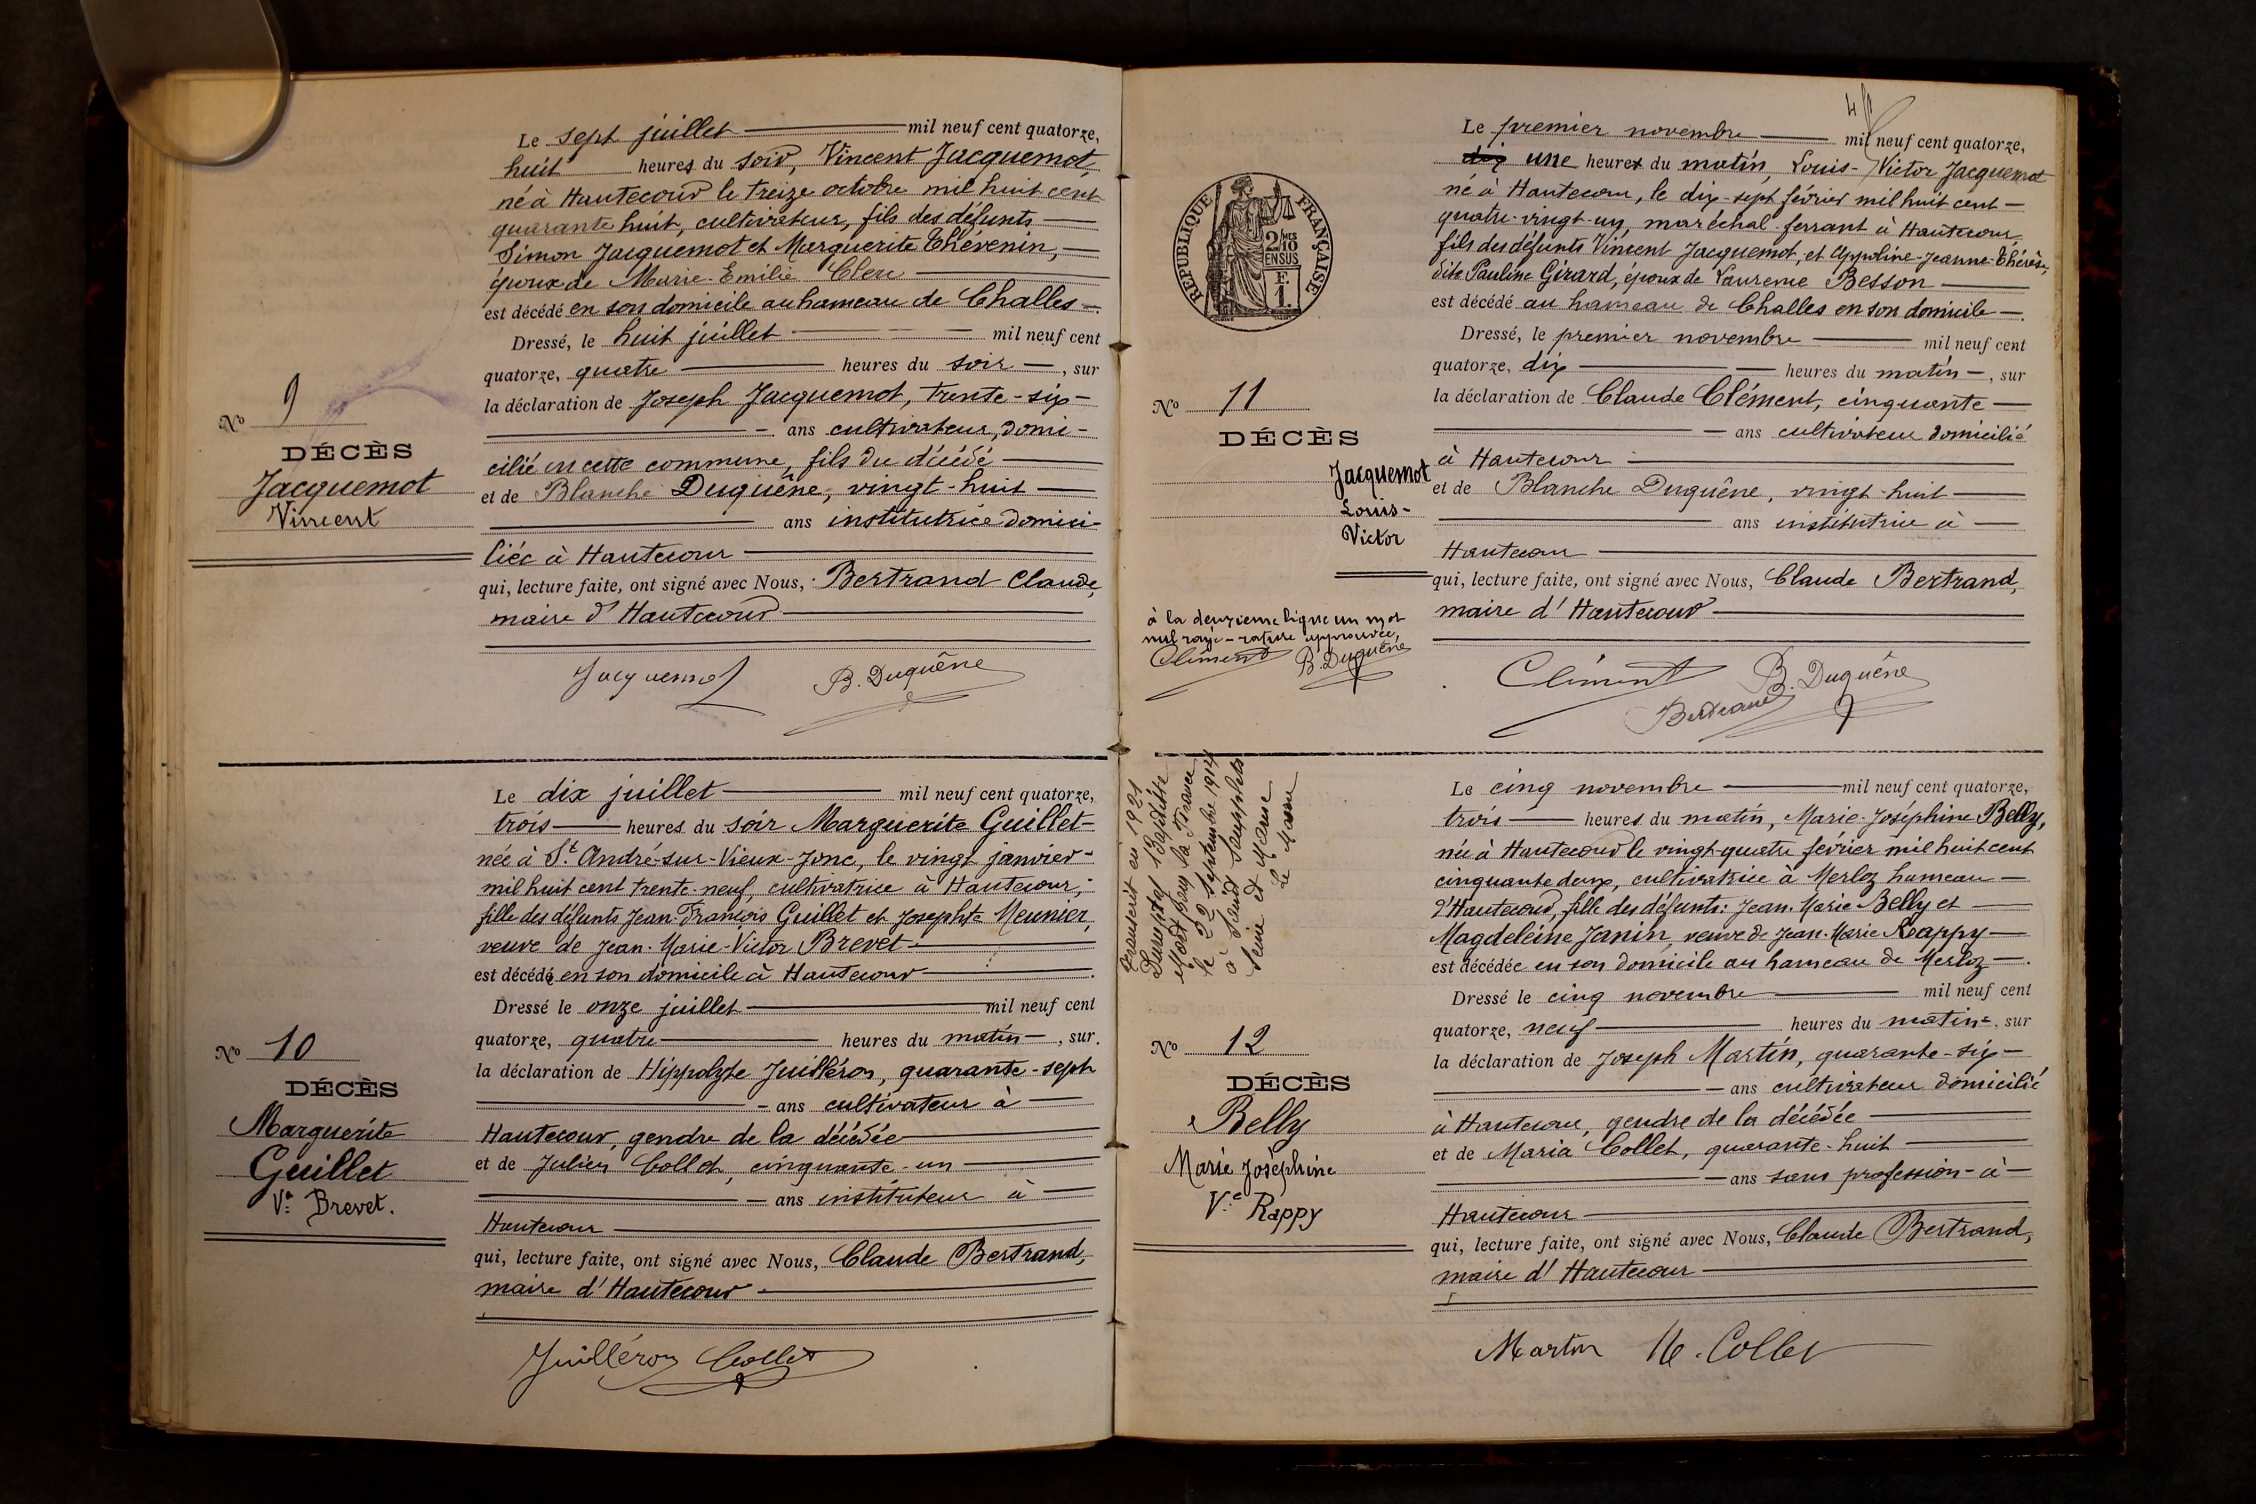 Le sept juillet mil neuf cent quatorze,
huit heures du soir, Vincent Jacquemot,
né à Hautecour le treize octobre mil huit cent
quarante huit, cultivateur, fils des défunts
Simon Jacquemot et Marguerite Thévenin,
époux de Marie-Emilie Clerc
est décédé en son domicile au hameau de Challes.
Dressé, le huit juillet mil neuf cent
quatorze, quatre heures du soir, sur
la déclaration de Joseph Jacquemot, trente-six
ans cultivateur, domi-
cilié en cette commune, fils du décédé
et de Blanche Duquêne, vingt-huit
ans institutrice domici-
liée à Hautecour
qui, lecture faite, ont signé avec Nous, Bertrand Claude,
maire d'Hautecour
Jacquemot B. Duquêne
No 9
DÉCÈS
Jacquemot
Vincent
Le dix juillet mil neuf cent quatorze,
trois heures du soir Marguerite Guillet
née à St André-sur-Vieux-Jonc, le vingt janvier
mil huit cent trente-neuf, cultivatrice à Hautecour,
fille des défunts Jean-François Guillet et Josephte Meunier,
veuve de Jean-Marie-Victor Brevet
est décédé en son domicile à Hautecour.
Dressé le onze juillet mil neuf cent
quatorze, quatre heures du matin, sur
la déclaration de Hippolyte Juilléron, quarante-sept
ans cultivateur à
Hautecour, gendre de la décédée
et de Julien Collet, cinquante-un
ans instituteur à
Hautecour
qui, lecture faite, ont signé avec Nous, Claude Bertrand,
maire d'Hautecour
Juilléron Collet
No 10
DÉCÈS
Marguerite
Guillet
Ve Brevet.
4
RÉPUBLIQUE FRANÇAISE
2/10
EN SUS
F.
1.
Le premier novembre mil neuf cent quatorze,
dix une heures du matin, Louis-Victor Jacquemot
né à Hautecour, le dix-sept février mil huit cent
quatre-vingt-un, maréchal-ferrant à Hautecour,
fils des défunts Vincent Jacquemot, et Appoline-Jeanne-Thérèse,
dite Pauline Girard, époux de Laurence Besson
est décédé au hameau de Challes en son domicile.
Dressé, le premier novembre mil neuf cent
quatorze, dix heures du matin, sur
la déclaration de Claude Clément, cinquante
ans cultivateur domicilié
à Hautecour
et de Blanche Duquêne, vingt-huit
ans institutrice à
Hautecour
qui, lecture faite, ont signé avec Nous, Claude Bertrand,
maire d'Hautecour
Clément B. Duquêne
Bertrand
No 11
DÉCÈS
Jacquemot
Louis-
Victor
à la deuxième ligne un mot
nul rayé - rature approuvée,
Clément B. Duquêne
Transcrit en 1921
Baptiste
Mort pour la France
le 22 septembre 1914
à
Seine et Marne
Le Maire
Le cinq novembre mil neuf cent quatorze,
trois heures du matin, Marie-Joséphine Belly,
née à Hautecour le vingt-quatre février mil huit cent
cinquante deux, cultivatrice à Merloz hameau
d'Hautecour, fille des défunts: Jean-Marie Belly et
Magdeleine Janin, veuve de Jean-Marie Rappy
est décédée en son domicile au hameau de Merloz.
Dressé le cinq novembre mil neuf cent
quatorze, neuf heures du matin, sur
la déclaration de Joseph Martin, quarante-six
ans cultivateur domicilié
à Hautecour, gendre de la décédée
et de Maria Collet, quarante-huit
ans sans profession à
Hautecour
qui, lecture faite, ont signé avec Nous, Claude Bertrand,
maire d'Hautecour
Martin M. Collet
No 12
DÉCÈS
Belly
Marie Joséphine
Ve Rappy